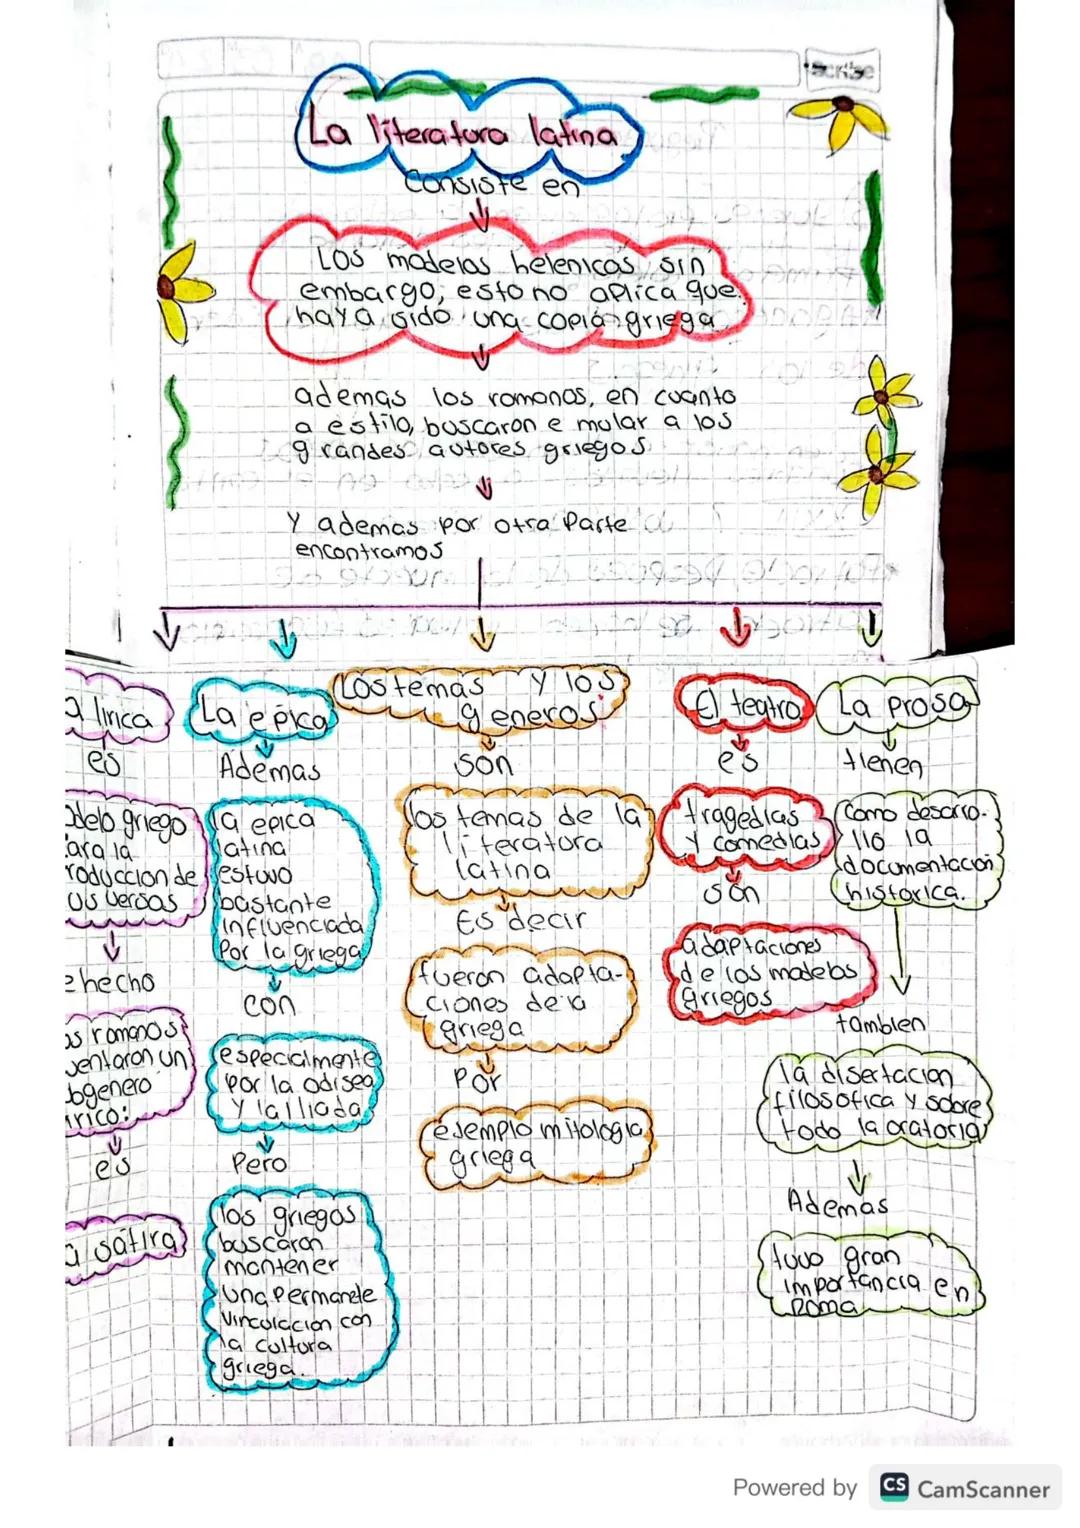 scribe
La literatura latina
Consiste en
Los modelos helenicos, sin
embargo, esto no aplica que
haya sido una copia griega
ademas los romanos, en cuanto
a estilo, buscaron e mular a los
grandes autores griegos
Y ademas por otra Parte
encontramos
a lirica
es
delo griego
ara la
roduccion de
us versos
e hecho
os romanos
ventaron un
bgenero
irico:
es
a sátira
La epica
Ademas
la epica
latina
estuvo
bastante
influenciada
Por la griega
con
especialmente
por la odisea
Y la Iliada
Pero
los griegos
buscaron
mantener
una Permanete
vinculacion con
la cultura
griega.
Los temas Y los
generos
son
los temas de la
literatura
latina
Es decir
fueron adapta-
ciones de la
griega
Por
ejemplo mitologia
griega
El teatro
es
tragedias
Y comedias
són
adaptaciones
de los modelos
griegos
La prosa
tienen
Como desarro-
llo la
documentación
historica.
tambien
la disertacion
filosofica y sobre
todo la oratoria
Ademas
tuvo gran
importancia en
Roma
Powered by CS CamScanner